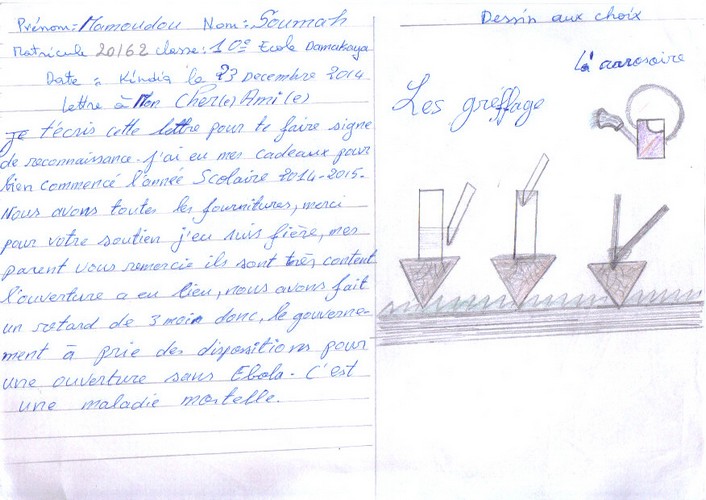 Prénom: Mamoudou Nom: Soumah
Matricule 20162 classe: 10e Ecole Damakaya
Date : Kindia le 23 Decembre 2014
Lettre à Mon Cher(e) Ami(e)
Je t'écris cette lettre pour te faire signe
de reconnaissance. J'ai eu mes cadeaux pour
bien commencé l'année Scolaire 2014-2015.
Nous avons toutes les fournitures, merci
pour votre soutien j'en suis fière, mes
parent vous remercie ils sont très content
l'ouverture a eu lieu, nous avons fait
un retard de 3 mois donc, le gouverne-
ment à prie des dispositions pour
une ouverture sans Ebola. C'est
une maladie mortelle.
Dessin aux choix
La arrosoire
Les gréffage